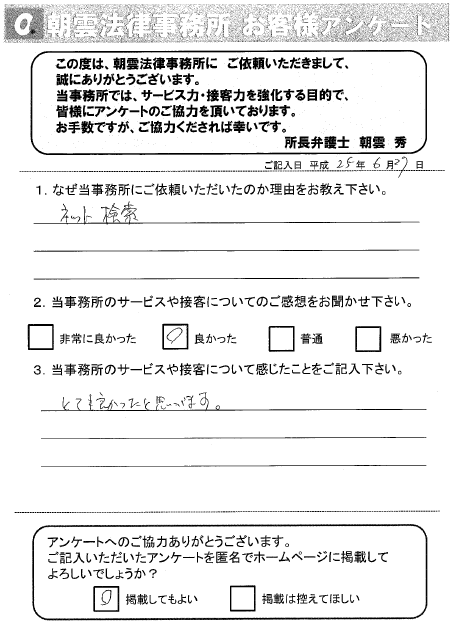 Q. 朝雲法律事務所 お客様アンケート
この度は、朝雲法律事務所に ご依頼いただきまして、
誠にありがとうございます。
当事務所では、サービス力・接客力を強化する目的で、
皆様にアンケートのご協力を頂いております。
お手数ですが、ご協力くだされば幸いです。
所長弁護士 朝雲 秀
ご記入日 平成 25年 6月27日
1. なぜ当事務所にご依頼いただいたのか理由をお教え下さい。
ネット検索
2. 当事務所のサービスや接客についてのご感想をお聞かせ下さい。
非常に良かった 良かった 普通 悪かった
3. 当事務所のサービスや接客について感じたことをご記入下さい。
とても良かったと思います。
アンケートへのご協力ありがとうございます。
ご記入いただいたアンケートを匿名でホームページに掲載して
よろしいでしょうか?
掲載してもよい 掲載は控えてほしい